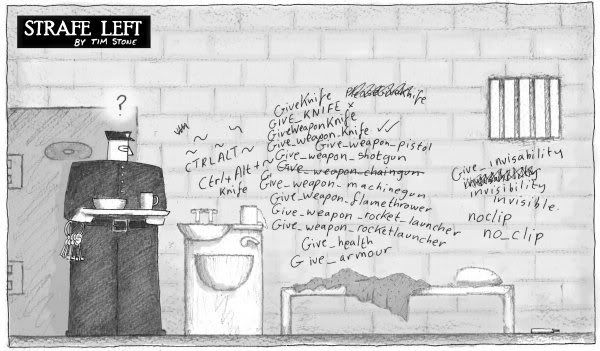 STRAFE LEFT
BY TIM STONE
?
GiveKnife
GIVE_KNIFE x
GiveWeaponKnife
Give_weapon_Knife ✓✓
Give_weapon_pistol
Give_weapon_shotgun
Give_weapon_chaingun
Give_weapon_machinegun
Give_weapon_flamethrower
Give_weapon_rocket_launcher
Give_weapon_rocketlauncher
Give_health
Give_armour
~ ~
CTRLALT~
Ctrl+Alt+~
Knife
Give_invisability
invisibility
invisible.
noclip
no_clip